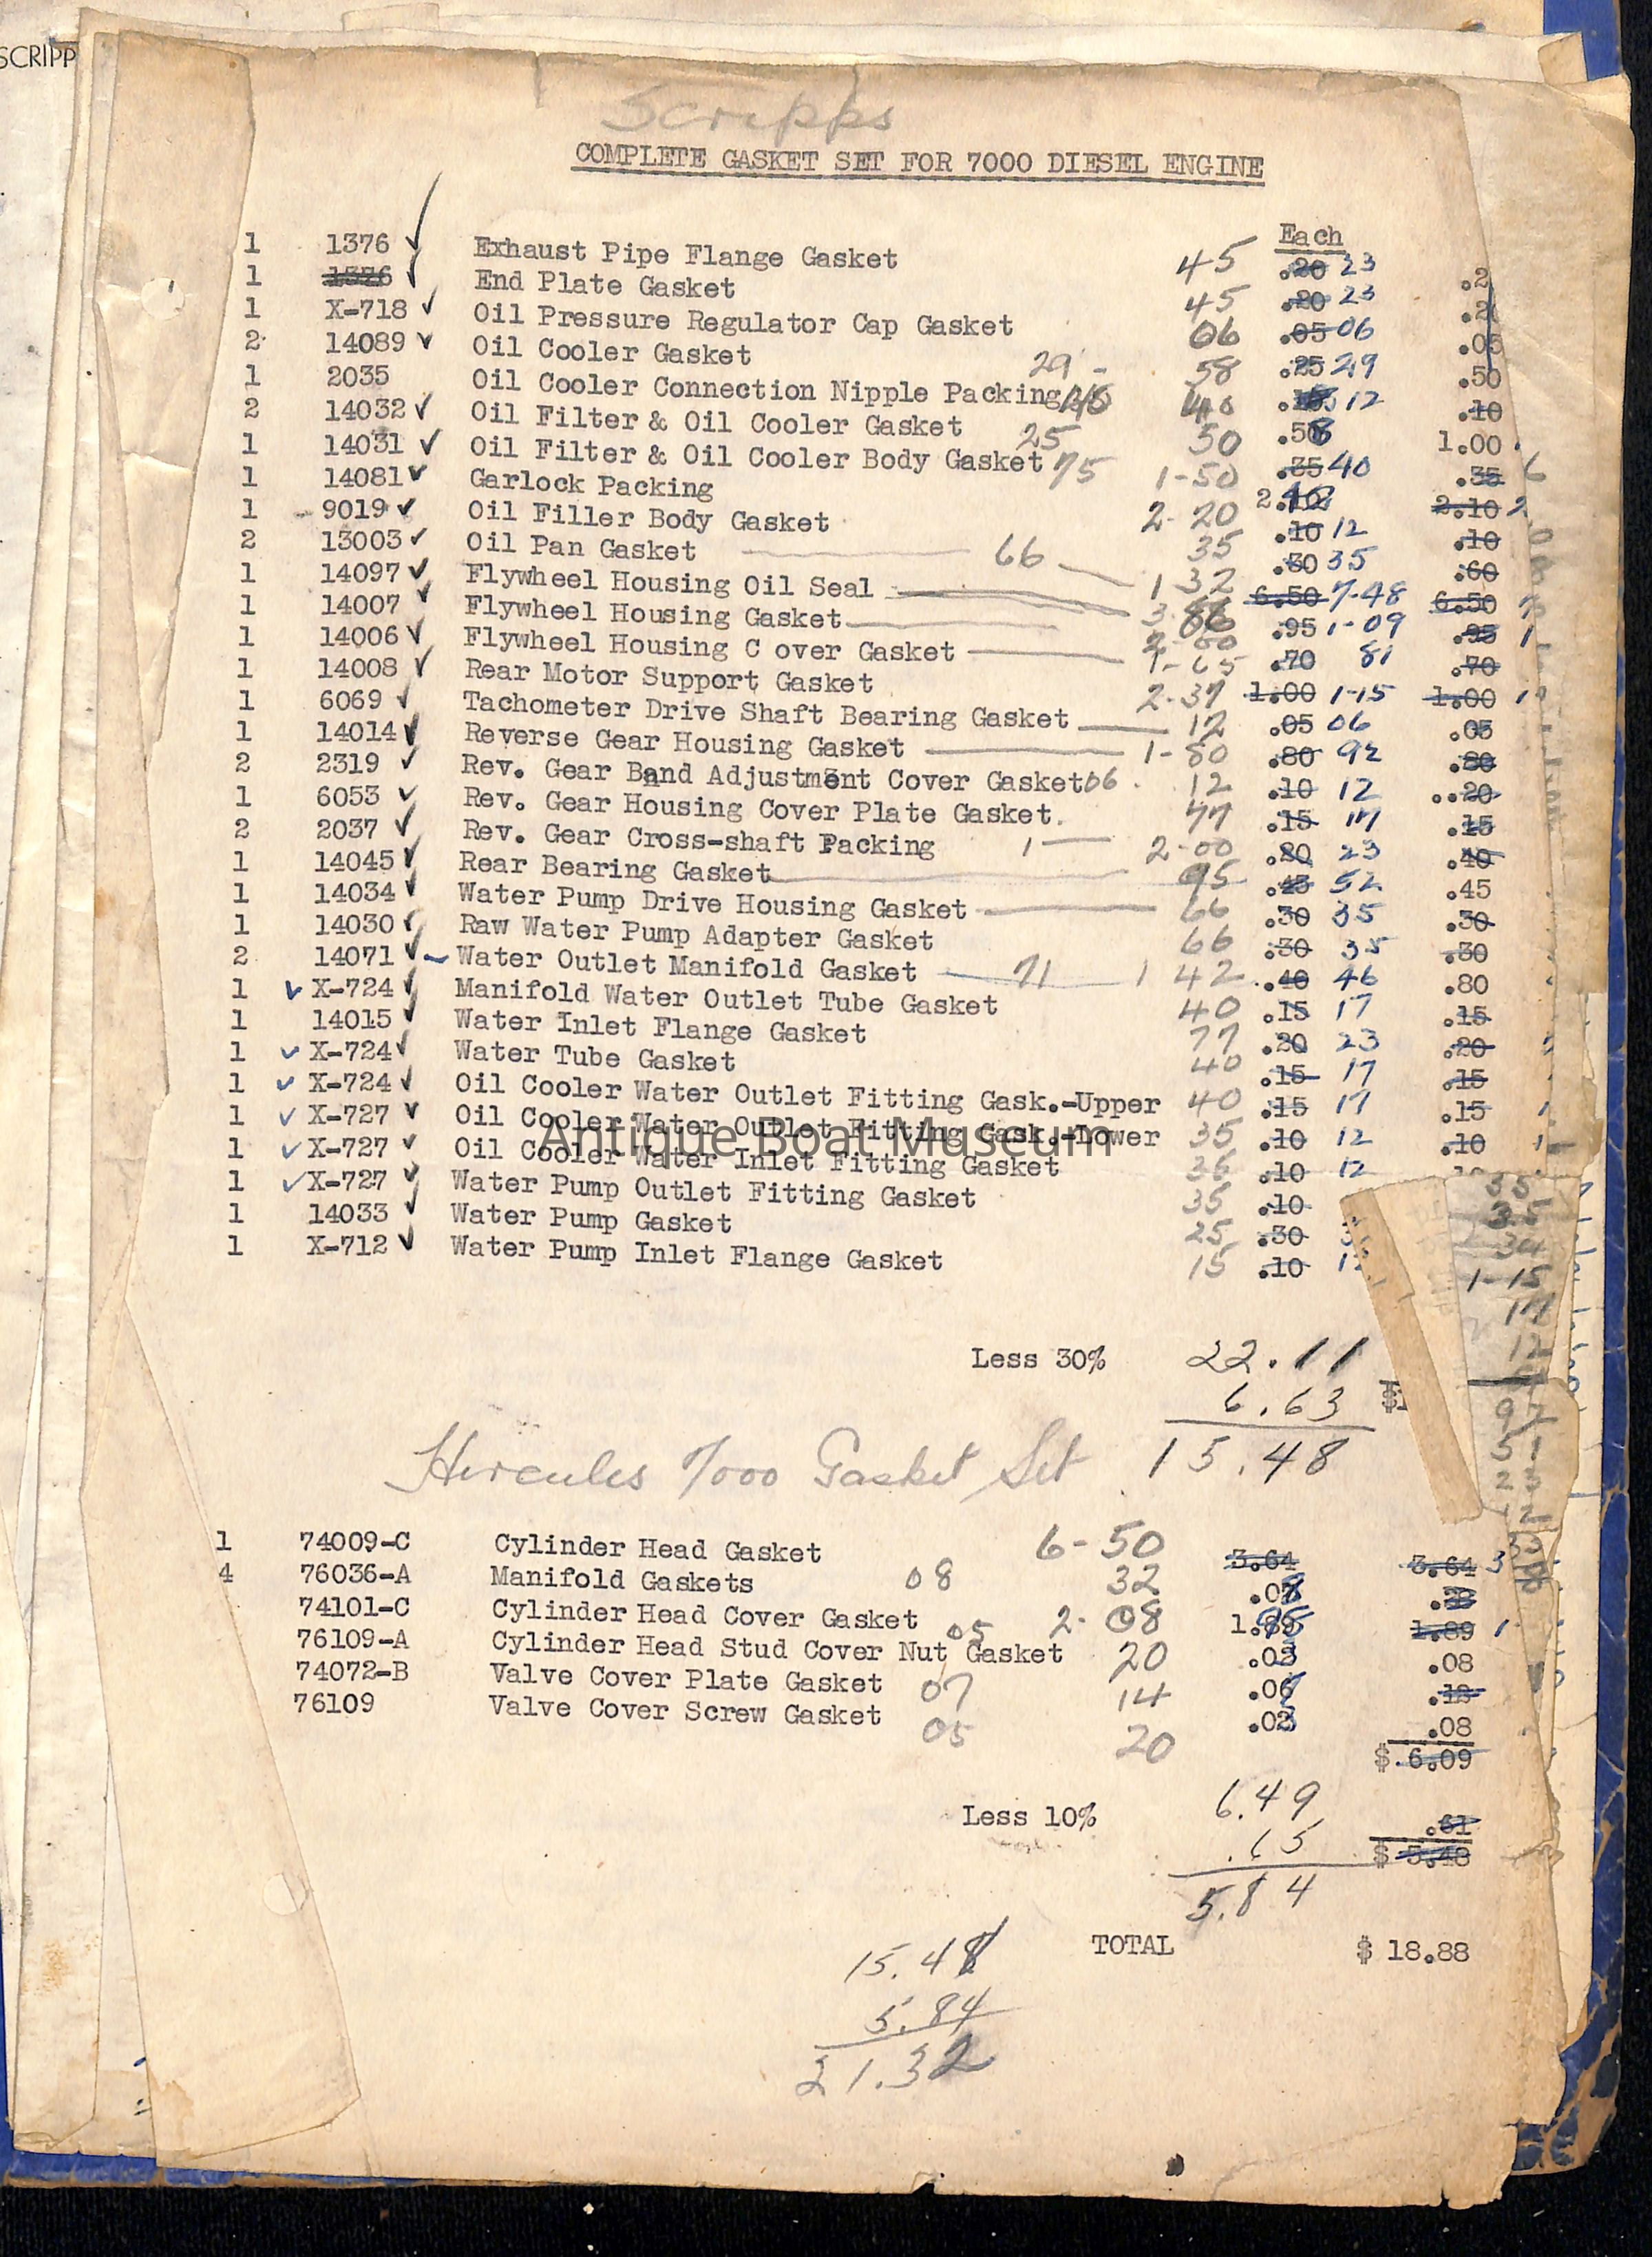 SCRIPP
Scripps
COMPLETE GASKET SET FOR 7000 DIESEL ENGINE
Each
1 1376 ✓ Exhaust Pipe Flange Gasket 45 .20 23 .2
1 1376 ✓ End Plate Gasket 45 .20 23 .2
1 X-718 ✓ Oil Pressure Regulator Cap Gasket 06 .05 06 .05
2 14089 ✓ Oil Cooler Gasket 29 - 58 .25 29 .50
1 2035 Oil Cooler Connection Nipple Packing 40 12 .10
2 14032 ✓ Oil Filter & Oil Cooler Gasket 25 50 .50 1.00
1 14031 ✓ Oil Filter & Oil Cooler Body Gasket 75 1-50 .35 40 .35
1 14081 ✓ Garlock Packing 2-20 2.10 2.10 2
1 9019 ✓ Oil Filler Body Gasket 35 .10 12 .10
2 13003 ✓ Oil Pan Gasket 66 1 32 .30 35 .60
1 14097 ✓ Flywheel Housing Oil Seal 3 86 6.50 7-48 6.50
1 14007 ✓ Flywheel Housing Gasket .95 1-09 .95 1
1 14006 ✓ Flywheel Housing C over Gasket 1-65 .70 81 .70
1 14008 ✓ Rear Motor Support Gasket 2-37 1.00 1-15 1.00
1 6069 ✓ Tachometer Drive Shaft Bearing Gasket 12 .05 06 .05
1 14014 ✓ Reverse Gear Housing Gasket 1-80 .80 92 .80
2 2319 ✓ Rev. Gear Band Adjustment Cover Gasket 06 12 .10 12 ..20
1 6053 ✓ Rev. Gear Housing Cover Plate Gasket 77 .15 17 .15
2 2037 ✓ Rev. Gear Cross-shaft Packing 1— 2-00 .20 23 .40
1 14045 ✓ Rear Bearing Gasket 95 .45 52 .45
1 14034 ✓ Water Pump Drive Housing Gasket 66 .30 35 .30
1 14030 ✓ Raw Water Pump Adapter Gasket 66 .30 35 .30
2 14071 ✓ Water Outlet Manifold Gasket 71 1 42 .40 46 .80
1 ✓ X-724 ✓ Manifold Water Outlet Tube Gasket 40 .15 17 .15
1 14015 ✓ Water Inlet Flange Gasket 77 .20 23 .20
1 ✓ X-724 ✓ Water Tube Gasket 40 .15 17 .15
1 ✓ X-724 ✓ Oil Cooler Water Outlet Fitting Gask.-Upper 40 .15 17 .15
1 ✓ X-727 ✓ Oil Cooler Water Outlet Fitting Gask.-Lower 35 .10 12 .10
Antique Boat Museum
1 ✓ X-727 ✓ Oil Cooler Water Inlet Fitting Gasket 35 .10 12
1 ✓ X-727 ✓ Water Pump Outlet Fitting Gasket 35 .10
1 14033 ✓ Water Pump Gasket 25 .30
1 X-712 ✓ Water Pump Inlet Flange Gasket 15 .10
35
35
34
1-15
17
12
97
51
23
Less 30% 22.11
6.63 $
15.48
Hercules 7000 Gasket Set
1 74009-C Cylinder Head Gasket 6-50 3.64 3.64 3
4 76036-A Manifold Gaskets 08 32
74101-C Cylinder Head Cover Gasket 2-08 1.89 1.89 1
76109-A Cylinder Head Stud Cover Nut Gasket 05 20 .02 .08
74072-B Valve Cover Plate Gasket 07 14 .06 .12
76109 Valve Cover Screw Gasket 05 20 .02 .08
$ 6.09
Less 10% 6.49 .61
.65 $ 5.48
5.84
TOTAL $ 18.88
15.48
5.84
21.32